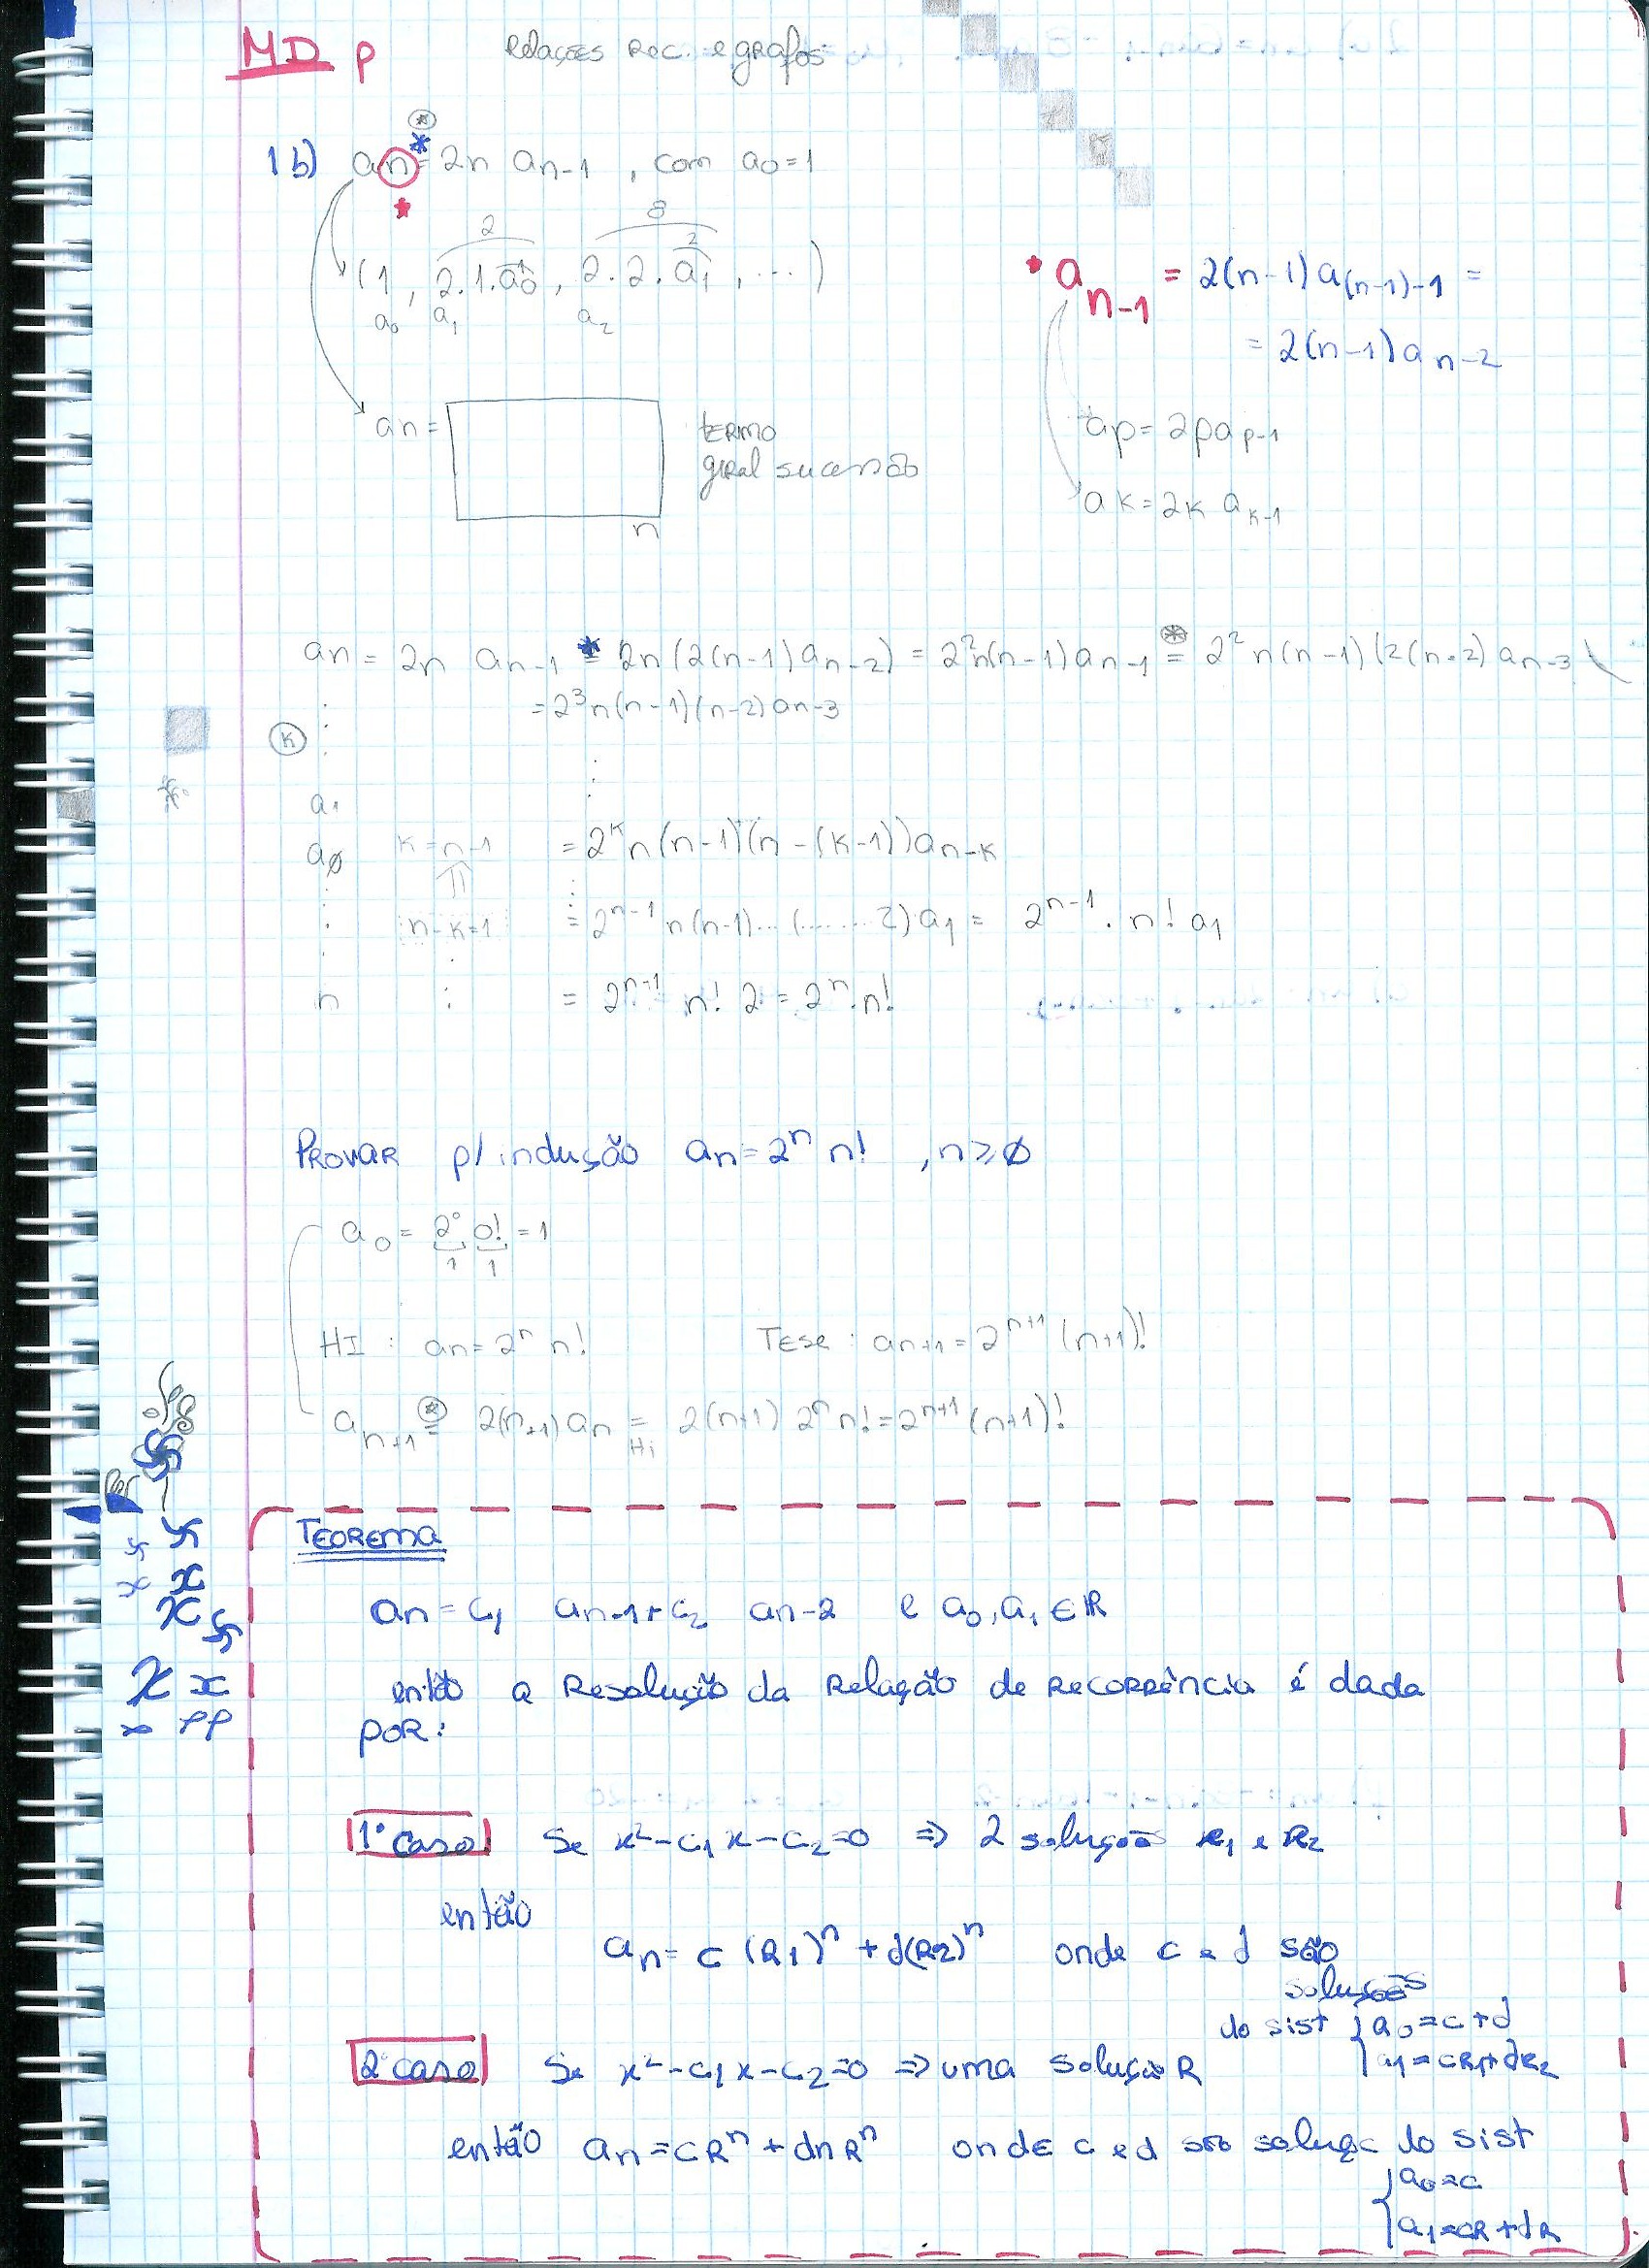 MD p
Relações Rec. e grafos
1b) an = 2n an-1 , com a0 = 1
2 8
1 2
(1, 2.1.a0, 2.2.a1, ....)
a0 a1 a2
* an-1 = 2(n-1)a(n-1)-1 =
= 2(n-1) an-2
an = termo
geral sucessão
n
ap = 2p ap-1
ak = 2k ak-1
an = 2n an-1 * = 2n(2(n-1)an-2) = 2²n(n-1)an-1 ⊛ = 2²n(n-1)(2(n-2)an-3
= 2³n(n-1)(n-2)an-3
k
a1
a0 k=n-1 = 2^k n(n-1)(n-(k-1))an-k
n-k=1 = 2^n-1 n(n-1)...(.......2)a1 = 2^n-1 . n! a1
n = 2^n-1 n! 2 = 2^n.n!
Provar p/ indução an = 2^n n! , n≥0
a0 = 2° 0! = 1
1 1
HI : an = 2^n n! Tese : an+1 = 2^n+1 (n+1)!
an+1 ⊛ = 2(n+1)an = 2(n+1) 2^n n! = 2^n+1 (n+1)!
Hi
Teorema
an = c1 an-1 + c2 an-2 e a0, a1 ∈ ℝ
então a Resolução da Relação de Recorrência é dada
por:
1° caso: Se x²-c1x-c2=0 ⇒ 2 soluções R1 e R2
então
an = c (R1)^n + d(R2)^n onde c e d são
soluções
do sist { a0 = c+d
a1 = cR1+dR2
2 caso Se x²-c1x-c2=0 ⇒ uma solução R
então an = cR^n + dnR^n onde c e d são soluçc do sist
{ a0 = c
a1 = cR + dR
x x
x
x x
x pp